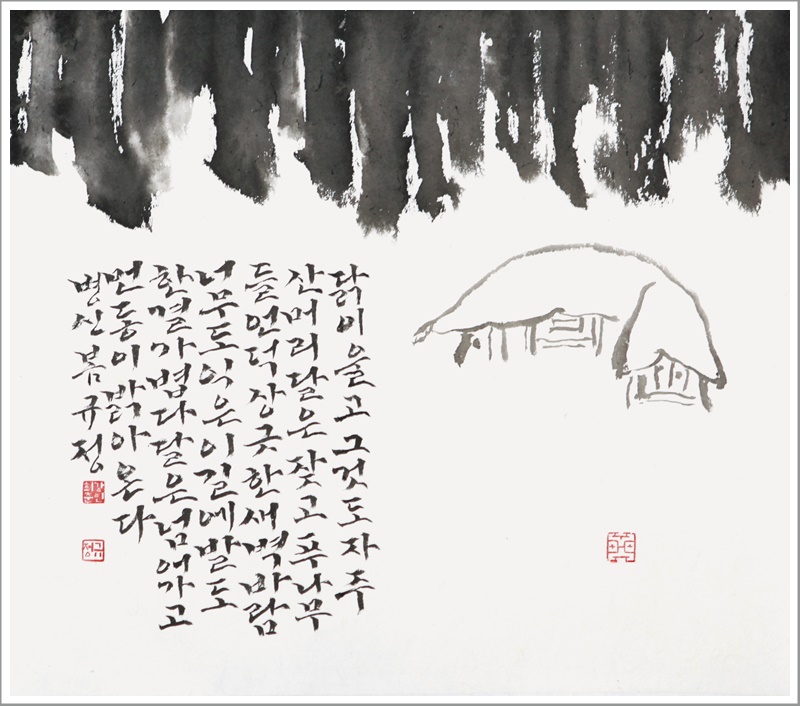 닭이울고그것도자주
산머리달은잦고푸나무
들언덕상긋한새벽바람
너무도익은이길에발도
한결가볍다달은넘어가고
먼동이밝아온다
병신봄규정
규정